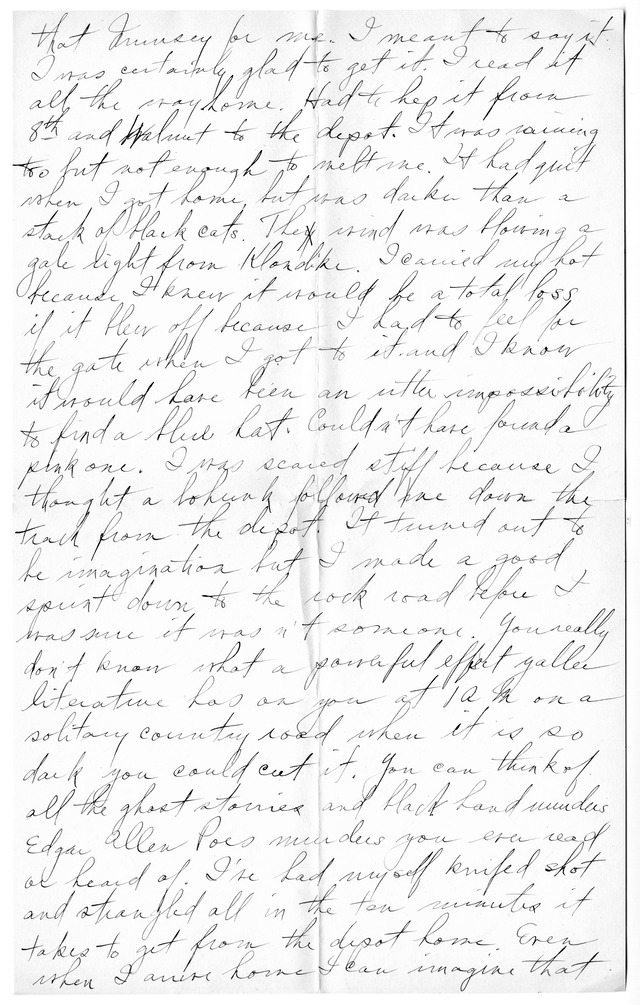 that Munsey for me. I meant to say it.
I was certainly glad to get it. I read it
all the way home. Had to hep it from
8th and Walnut to the depot. It was raining
too but not enough to melt me. It had quit
when I got home but was darker than a
stack of black cats. The wind was blowing a
gale right from Klondike. I carried my hat
because I knew it would be a total loss
if it blew off because I had to feel for
the gate when I got to it and I know
it would have been an utter impossibility
to find a blue hat. Couldn't have found a
pink one. I was scared stiff because I
thought a bohunk followed me down the
track from the depot. It turned out to
be imagination but I made a good
sprint down to the rock road before I
was sure it was n't someone. You really
don't know what a powerful effect yaller
literature has on you at 1 a m on a
solitary country road when it is so
dark you could cut it. You can think of
all the ghost stories and black hand murders
Edgar Allen Poes murders you ever read
or heard of. I've had myself knifed shot
and strangled all in the ten minutes it
takes to get from the depot home. Even
when I arrive home I can imagine that